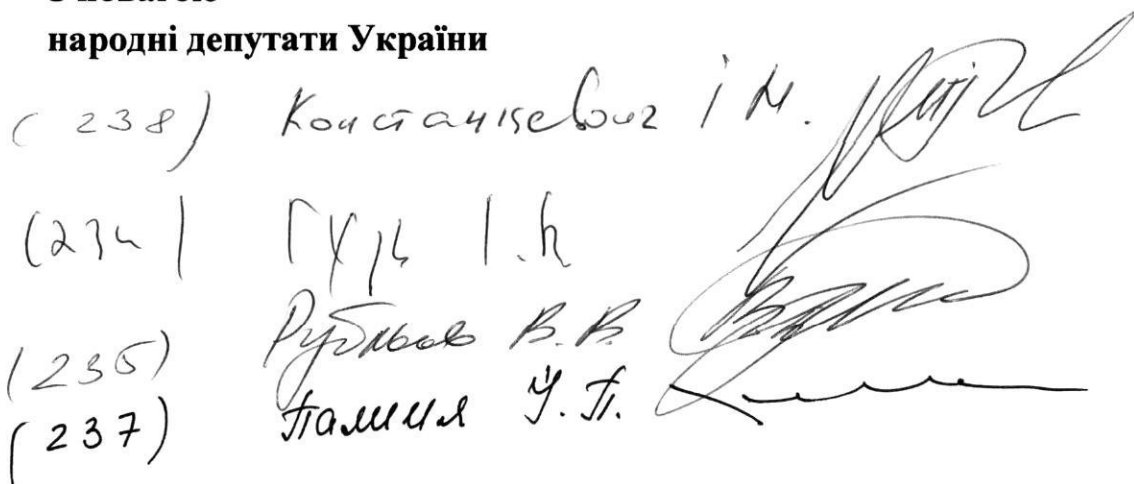 З повагою
народні депутати України
(238) Констанкевич І М.
(234) Гузь І.В
(235) Рубльов В.В.
(237) Палиця І.П.